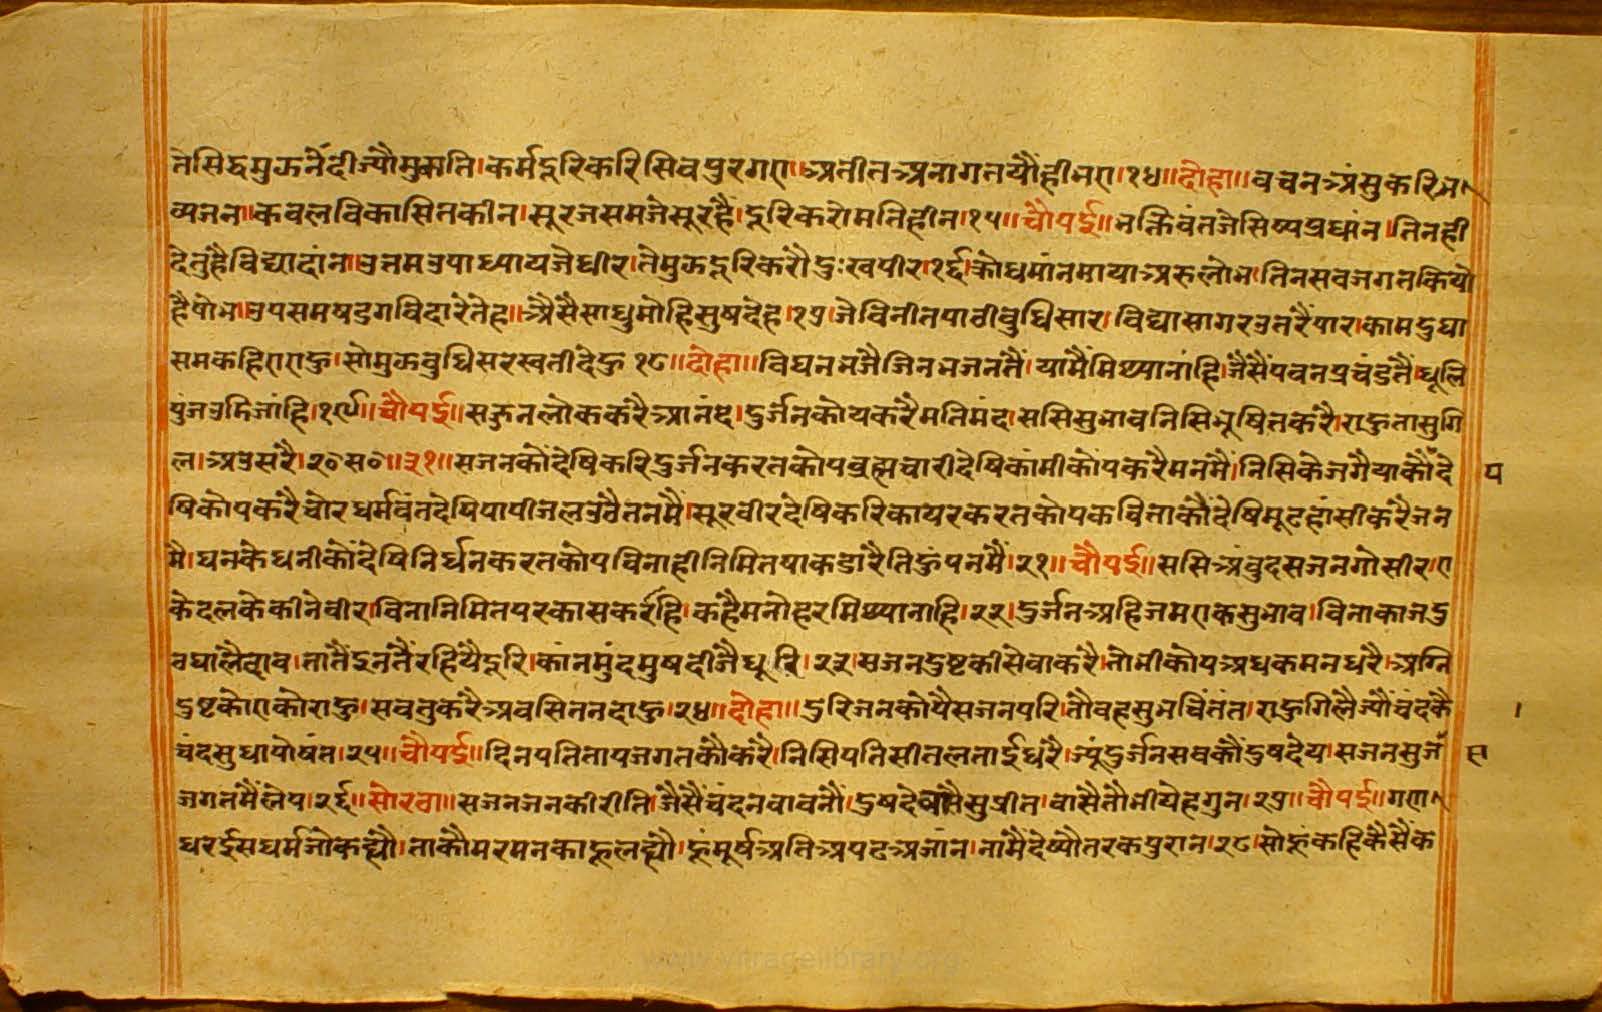 तेसिद्धमुऊनैंदीज्यौमुकति।कर्मदूरिकरिसिवपुरगए॥अतीतअनागतयौंहीभए।१४॥दोहा॥वचनअंसुकरिभ
व्यजन॥कवलविकासितकीन।सूरजसमजेसूरहैं।दूरिकरोमतिहीन।१५॥चौपई॥भक्तिवंतजेसिष्यप्रधांन।तिनही
देतुहैविद्यादांन।उत्तमउपाध्यायजेधीर।तेमुऊदूरिकरौदुःखपीर।१६।क्रोधमांनमायाअरुलोभ।तिनसवजगतकियो
हैषोभ॥उपसमषडगविदारेतेह॥अैसैसाधुमोहिसुषदेह।१७।जेविनीतपाठीवुधिसार।विद्यासागरउतरैंपार।कामदुघा
समकहिएराहु।सोमुऊवुधिसरस्वतीदेहु१८॥दोहा॥विघनभजैजिनभजनतैं।यामैंमिथ्यानांहि।जैंसैंपवनप्रचंडतैं।धूलि
पुंजउडिजांहि।१९॥चौपई॥सज्जनलोककरैआनंद।दुर्जनकोयकरैमतिमंद।ससिसुभावनिसिभूषितकरै।राहुतासुगि
ल।अउसरै।२०स०॥३१॥सजनकौंदेषिकरिदुर्जनकरतकोपब्रह्मचारीदेषिकांमीकोपकरैमनमैं।निसिकेजगैयाकौंदे प
षिकोपकरैचोरधर्मवंतदेषिपापीजलउठैतनमैं।सूरवीरदेषिकरिकायरकरतकोपकविताकौंदेषिमूढहांसीकरैजन
मै।धनकेधनीकौंदेषिनिर्धनकरतकोपविनाहीनिमितपाकडारैतिहुंपनमैं।२१॥चौपई॥ससिअंवुदसजनगोसीर।ए
केदलकेकीनेवीर।विनानिमितपरकासकरैंहि।कहैमनोहरमिथ्यानाहि।२२।दुर्जनअहिजमएकसुभाव।विनाकाजदु
वघालैघाव।तातैंइनतैंरहियैदूरि।कांनमुंदमुषदीजैधूरि।२३।सजनदुष्टकीसेवाकरै।तोभीकोपअधकमनधरै।अग्नि
दुष्टकोएकोराहु।सवतुकरैअवसितनदाहु।२४॥दोहा॥दुरिजनकोयैसजनपरि।तौवहसुभचिंतंत।राहुगिलैज्यौंचंदकै ।
चंदसुधापोषंत।२५॥चौपई॥दिनपतितापजगतकौंकरै।निसिपतिसीतलताईधरै।ज्यूंदुर्जनसवकौंदुषदेय।सजनसुजं स
जगतमैंलेप।२६॥सोरठा॥सजनजनकीरीति।जैंसैंचंदनवावनौं।दुषदेवासैसुप्रीत।वासैतौभीयेहगुन।२७॥चौपई॥गण
धरईसधर्मजोकह्यौ।ताकौमरमनकाहूलह्यौ।हूंमूर्षअतिअपढअजांन।नामैंदेष्यौतरकपुरान।२८।सोहूंकहिकैसैंक